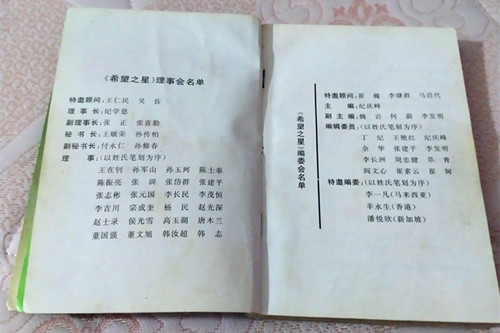 《希望之星》理事会名单
特邀顾问：王仁民 吴佐
理事长：纪学恩
副理事长：张正 张喜勤
秘书长：王敏荣 孙传柏
副秘书长：付永仁 孙修春
理事：(以姓氏笔划为序)
王在钊 孙军山 孙玉珂 陈士奉
陈振亮 张训 张岱群 张建平
张志彬 张元国 李长民 李茂恒
李吉川 宗成奎 杨民 赵光深
赵士录 侯光雪 高玉湖 唐木兰
董国强 董文旭 韩汝超 韩志
《希望之星》编委会名单
特邀顾问：崔巍 李继群 马启代
主编：纪庆峰
副主编：魏岩 何蔚 李发明
编辑委员：(以姓氏笔划为序)
丁纪 王艳红 纪庆峰
余华 张建平 李发明
李长洲 周忠健 草青
阎文心 崔素云 崔
特邀编委：(以姓氏笔划为序)
李一凡(马来西亚)
辛水生(香港)
潘悦欣(新加坡)